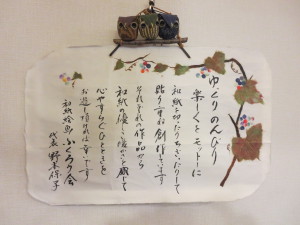 ゆっくり のんびり
楽しくをモットーに
和紙を切ったりちぎったりして
貼り重ね創作しています
それぞれの作品から
和紙の優しさ暖かさを感じて
心やすらぐひとときを
お過し頂ければ幸いです
和紙絵画 ふくろうの会
代表 野本